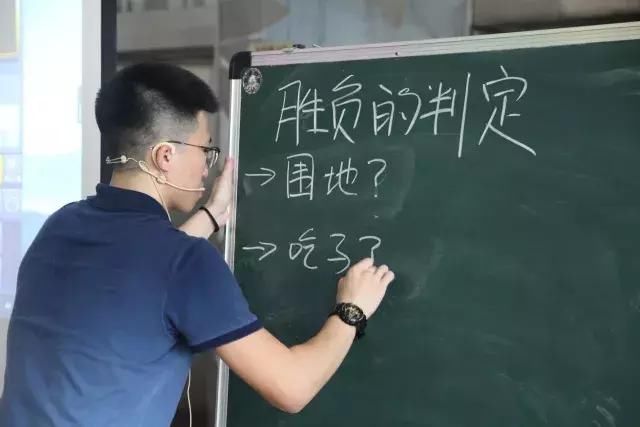 胜负的判定
→围地?
→吃子?